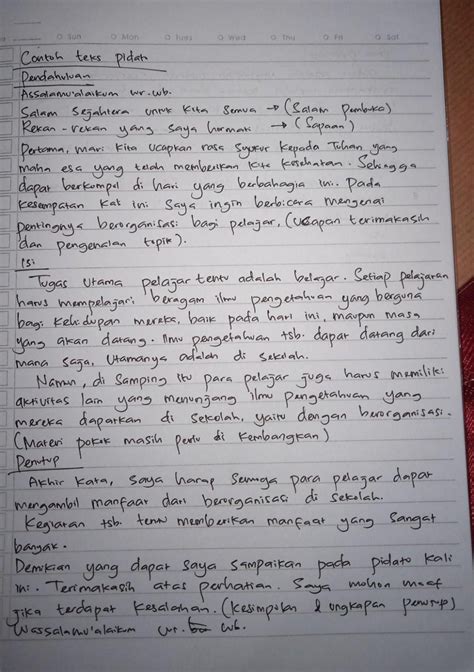 Sun Mon Tues Wed Thu Fri Sat
Contoh teks pidato
Pendahuluan
Assalamu'alaikum wr.wb.
Salam Sejahtera untuk kita semua → (Salam Pembuka)
Rekan-rekan yang saya hormati → (Sapaan)
Pertama, mari kita ucapkan rasa syukur kepada Tuhan yang
maha esa yang telah memberikan kita kesehatan. Sehingga
dapat berkumpul di hari yang berbahagia ini. Pada
kesempatan kali ini saya ingin berbicara mengenai
pentingnya berorganisasi bagi pelajar, (ucapan terimakasih
dan pengenalan topik).
Isi
Tugas utama pelajar tentu adalah belajar. Setiap pelajaran
harus mempelajari beragam ilmu pengetahuan yang berguna
bagi kehidupan mereka, baik pada hari ini, maupun masa
yang akan datang. Ilmu pengetahuan tsb. dapat datang dari
mana saja, utamanya adalah di sekolah.
Namun, di samping itu para pelajar juga harus memiliki
aktivitas lain yang menunjang ilmu pengetahuan yang
mereka dapatkan di sekolah, yaitu dengan berorganisasi.
(Materi pokok masih perlu di kembangkan)
Penutup
Akhir kata, saya harap semoga para pelajar dapat
mengambil manfaat dari berorganisasi di sekolah.
Kegiatan tsb. tentu memberikan manfaat yang sangat
banyak.
Demikian yang dapat saya sampaikan pada pidato kali
ini. Terimakasih atas perhatian. Saya mohon maaf
jika terdapat kesalahan. (kesimpulan & ungkapan penutup)
Wassalamu'alaikum wr. wb.